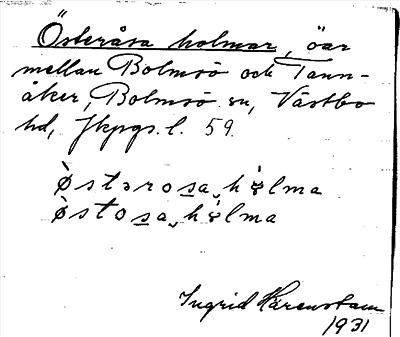 Österåsa holmar, öar
mellan Bolmsö och Tann-
åker, Bolmsö sn, Västbo
hd, Jkpgs. l. 59.
Østərosa hølma
Østosa hølma
Ingrid Härenstam
1931